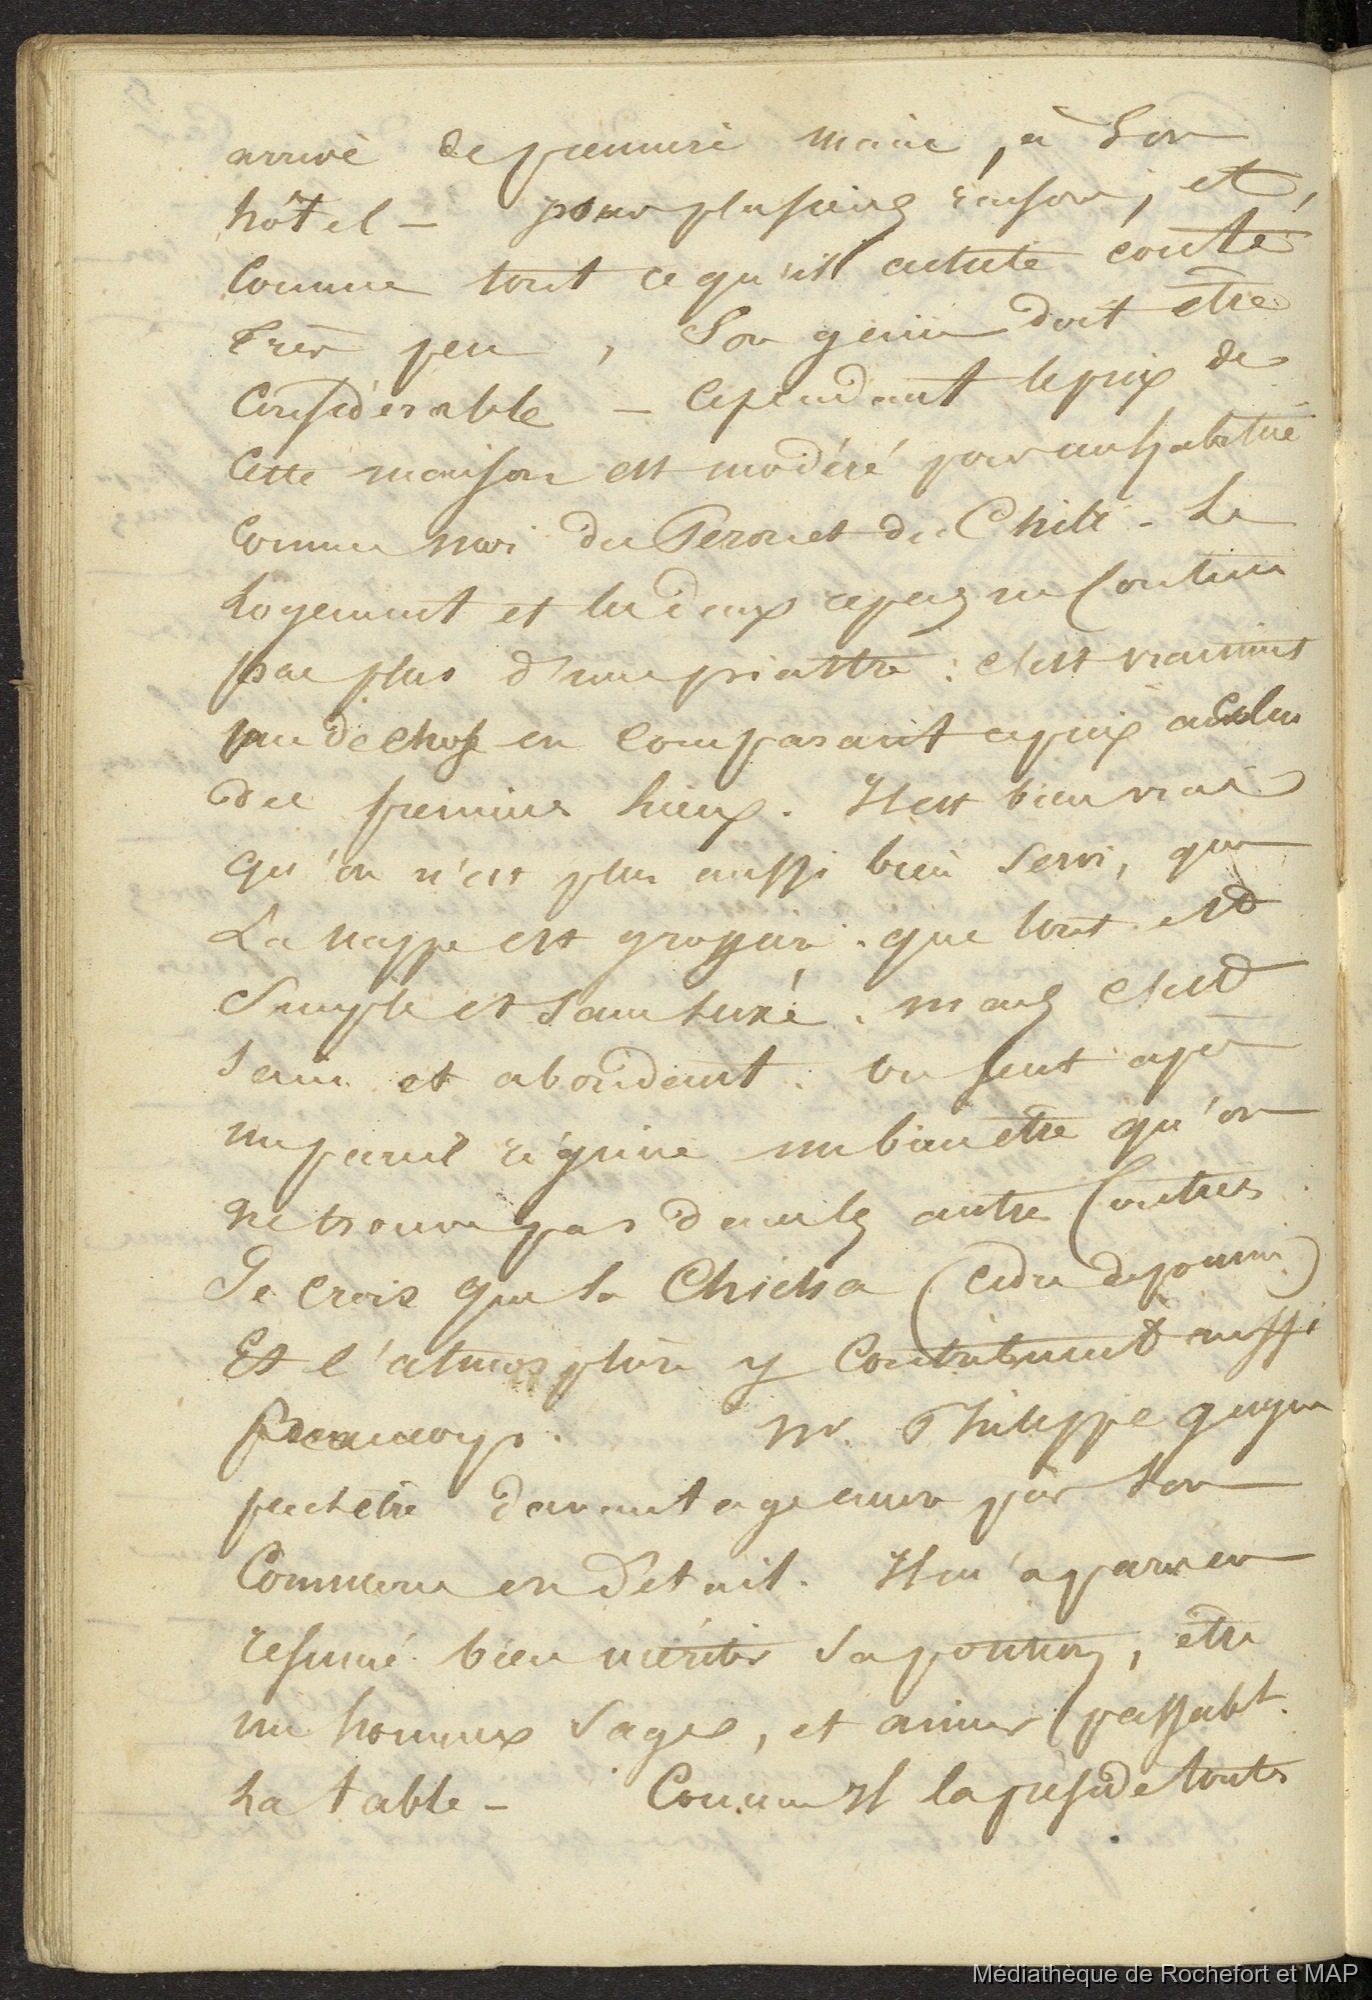 arrivé de premiere main, à son
hôtel — pour plusieurs raisons, et,
comme tout ce qu'il achete coute
très peu, Son gain doit etre
Considérable — Cependant le prix de
Cette maison est modéré pour un habitué
comme moi du Perou et du Chili. Le
Logement et les deux repas ne Coutent
pas plus d'une piastre : c'est vraiment
peu de chose en comparant ce prix à celui
des premiers lieux. Il est bien vrai
qu'on n'est plus aussi bien servi, que
La nappe est grossiere. que tout est
Simple et sans luxe. mais c'est
Sain et abondant. on sent après
un pareil régime un bien etre qu'on
ne trouve pas dans les autres Contrées
Je crois que la Chicha (cidre de pomme)
Et l'atmosphère y Contribuent aussi
beaucoup. Mr. Philippe gagne
peut etre davantage encore par son
Commerce en détail. Il m'a paru en
resumé bien mériter sa fortune, être
un homme sage, et aimer passabt.
La table — Comme Il la preside toutes
Médiathèque de Rochefort et MAP